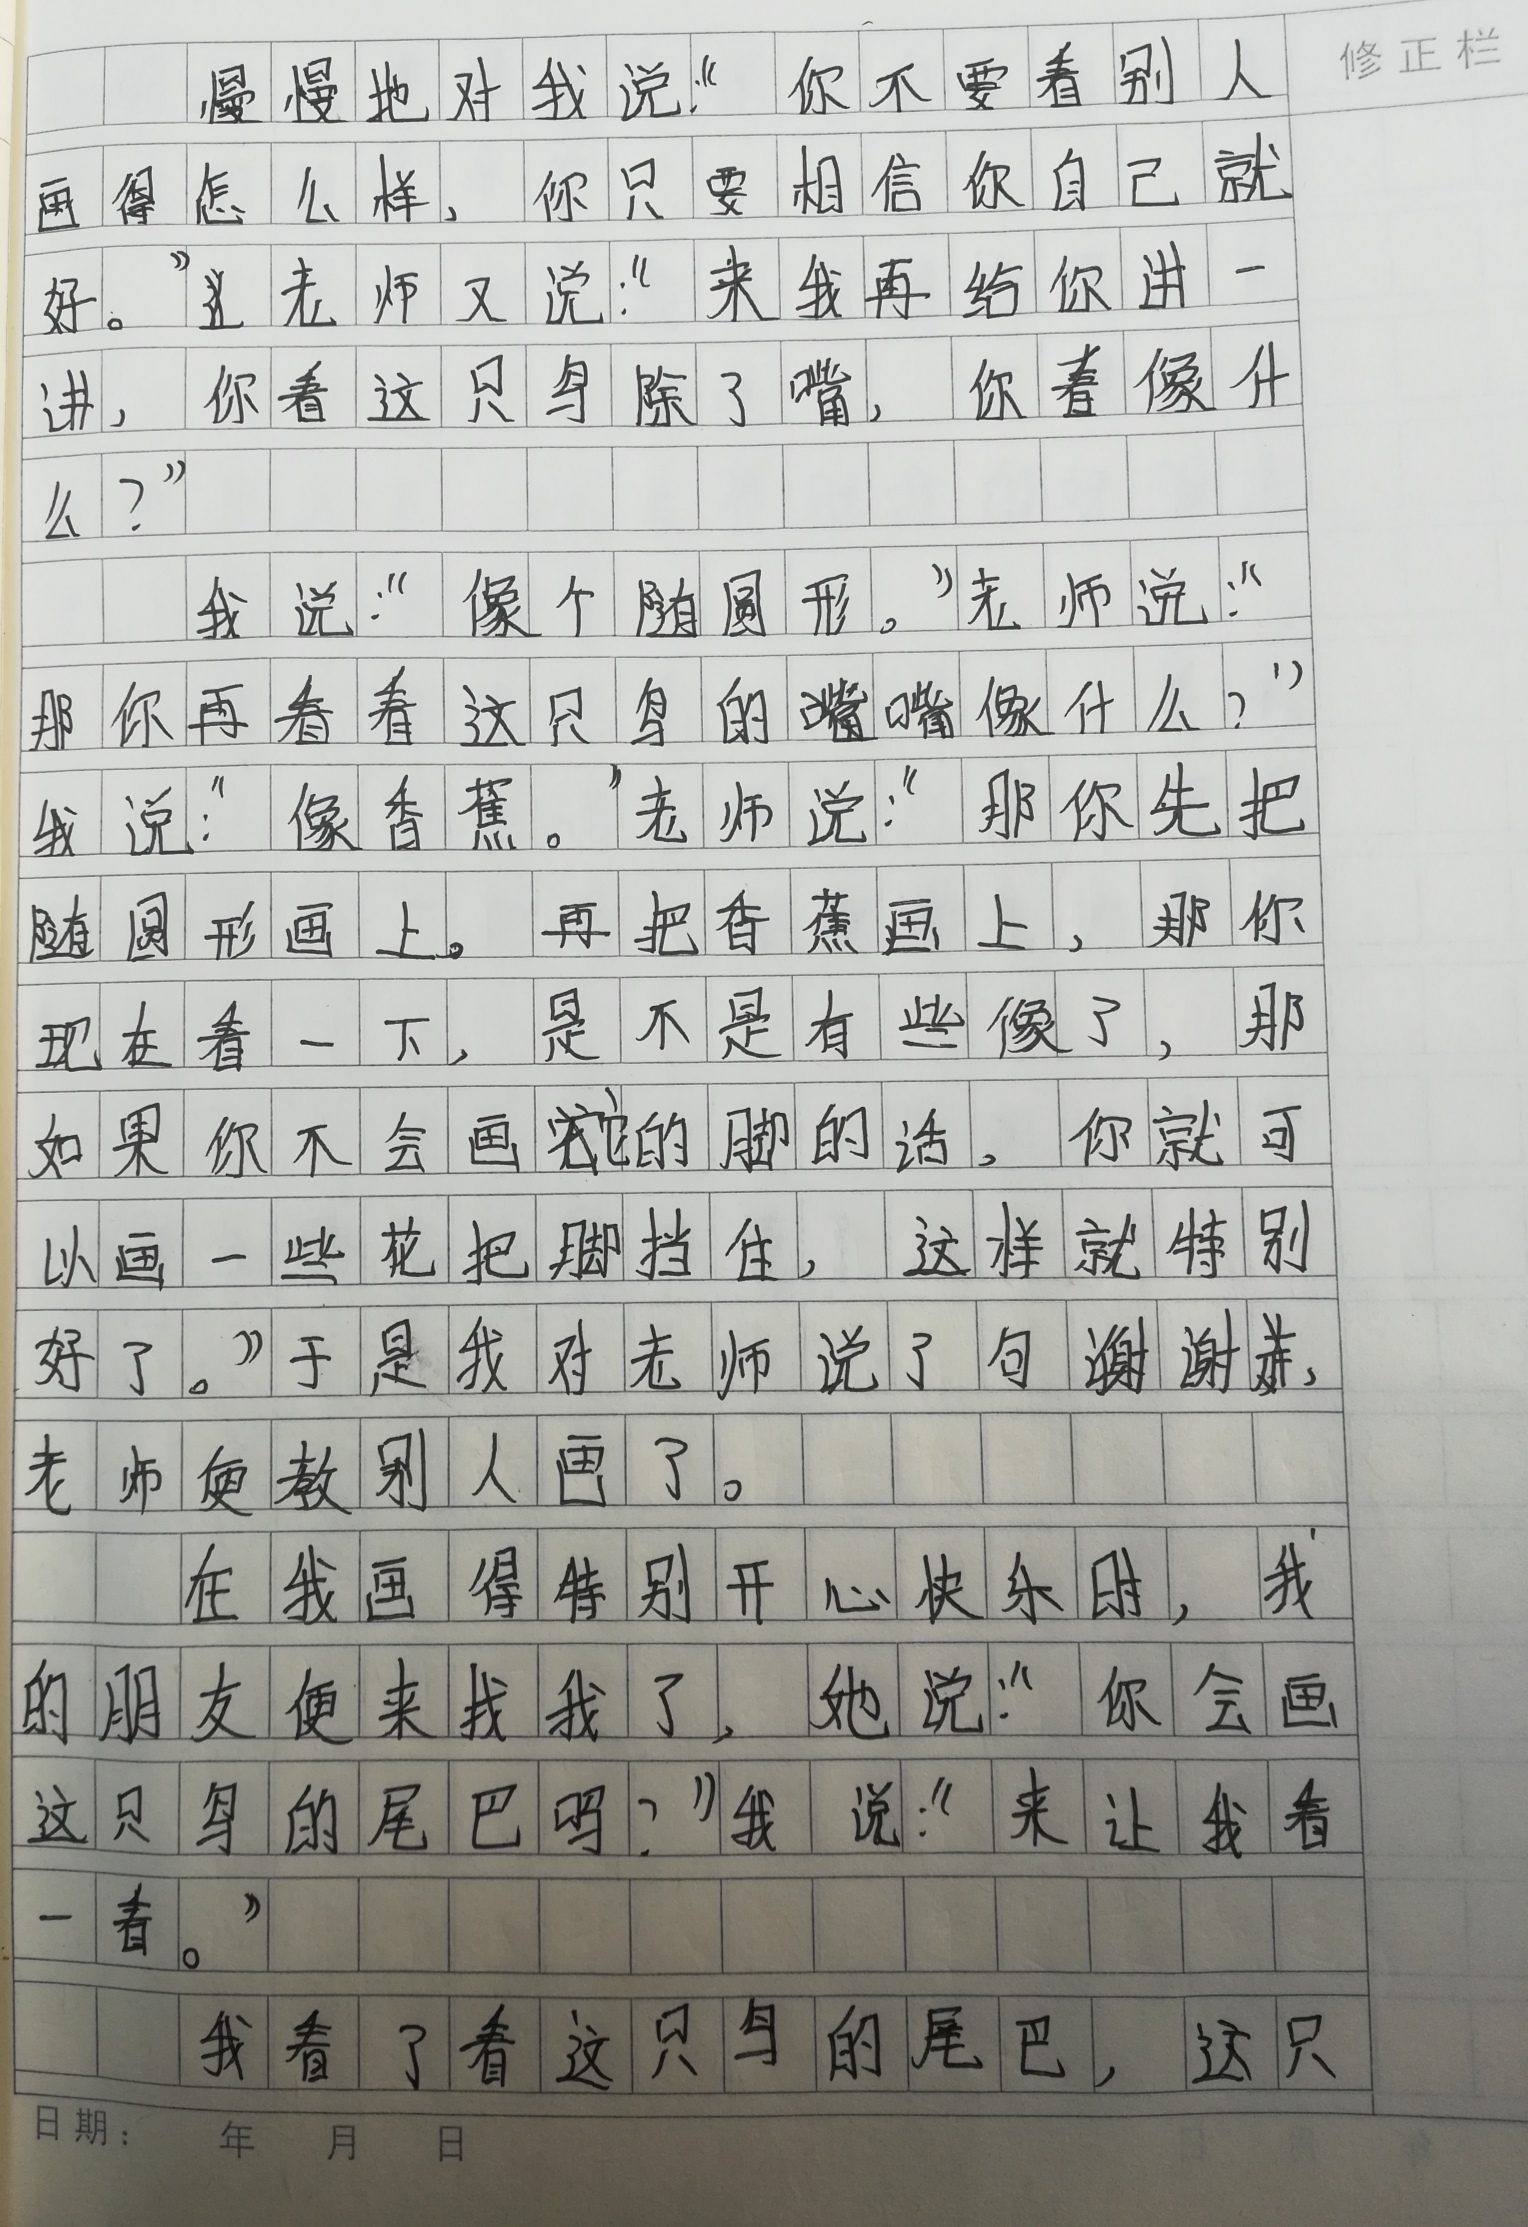 修正栏
慢慢地对我说：“你不要看别人
画得怎么样，你只要相信你自己就
好。”老师又说：“来我再给你讲一
讲，你看这只鸟除了嘴，你看像什
么？”
我说：“像个随圆形。”老师说：“
那你再看看这只鸟的嘴嘴像什么？”
我说：“像香蕉。”老师说：“那你先把
随圆形画上。再把香蕉画上，那你
现在看一下，是不是有些像了，那
如果你不会画它的脚的话，你就可
以画一些花把脚挡住，这样就特别
好了。”于是我对老师说了句谢谢，
老师便教别人画了。
在我画得特别开心快乐时，我
的朋友便来找我了，她说：“你会画
这只鸟的尾巴吗？”我说：“来让我看
一看。”
我看了看这只鸟的尾巴，这只
日期： 年 月 日